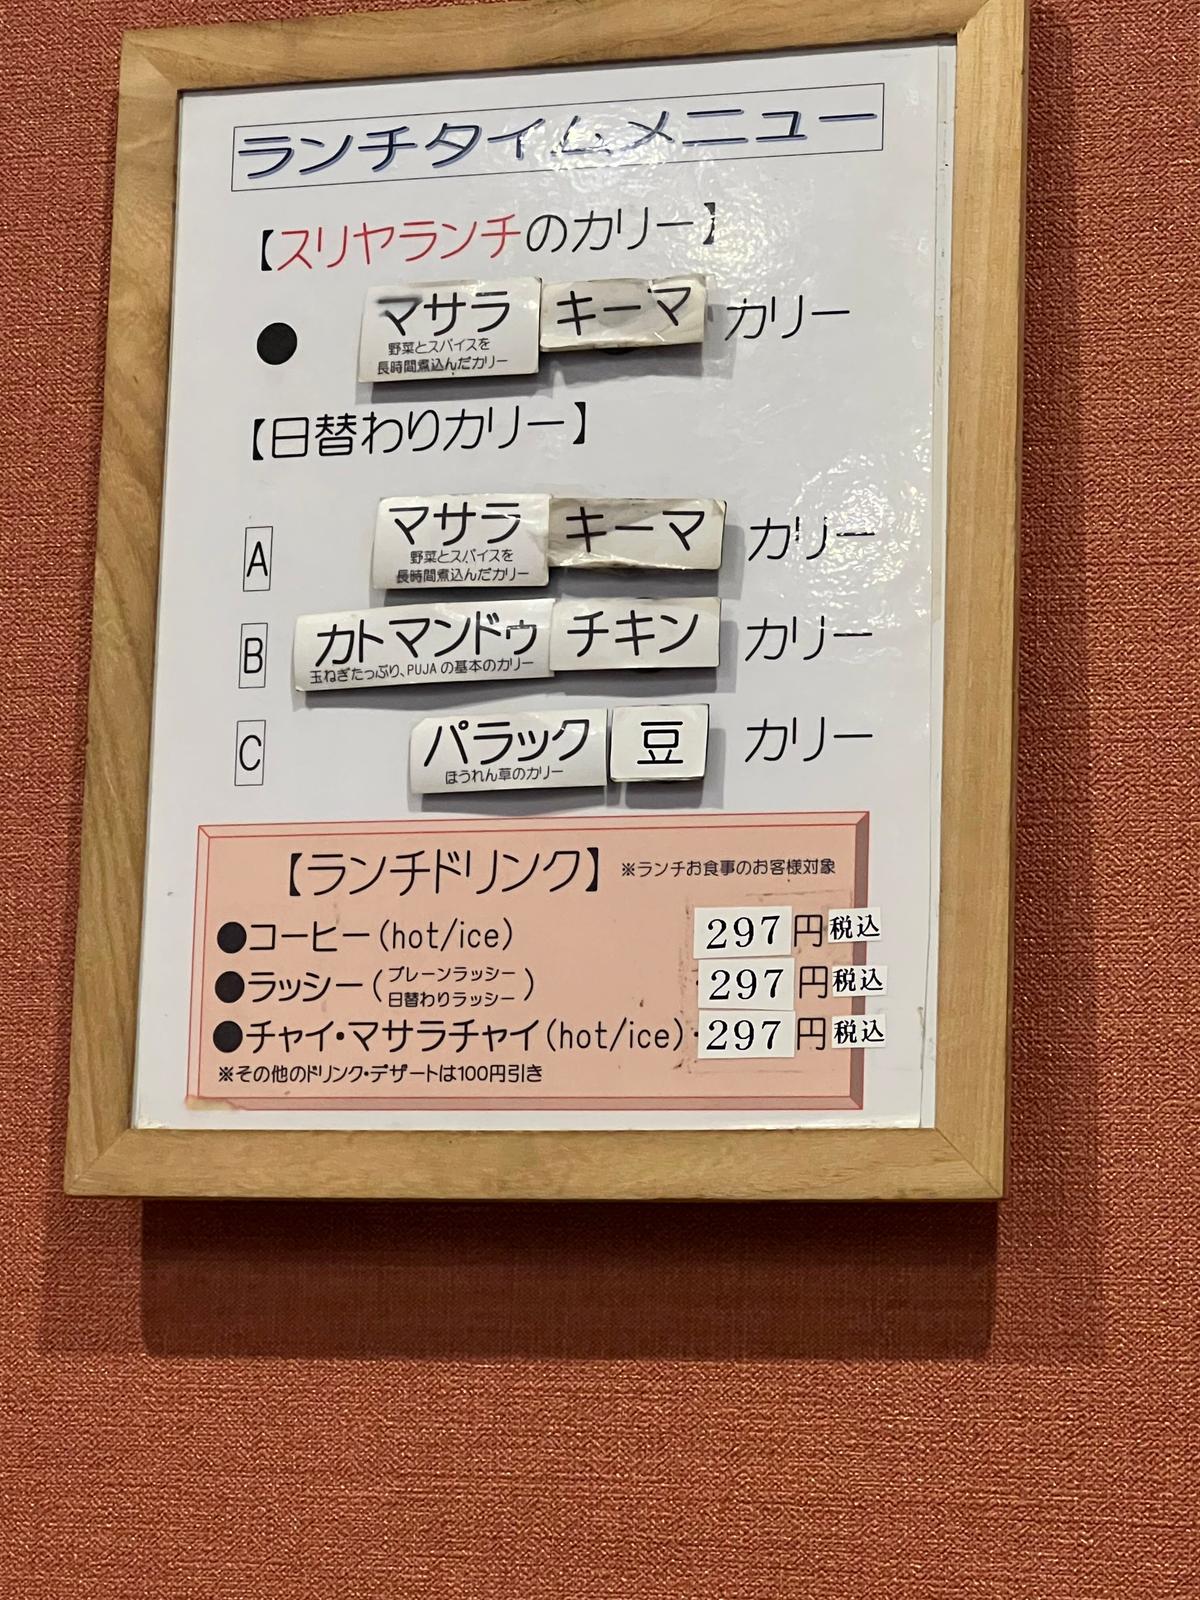 ランチタイムメニュー
【スリヤランチのカリー】
● マサラ キーマ カリー
野菜とスパイスを
長時間煮込んだカリー
【日替わりカリー】
A マサラ キーマ カリー
野菜とスパイスを
長時間煮込んだカリー
B カトマンドゥ チキン カリー
玉ねぎたっぷり、PUJAの基本のカリー
C パラック 豆 カリー
ほうれん草のカリー
【ランチドリンク】 ※ランチお食事のお客様対象
●コーヒー(hot/ice) 297円税込
●ラッシー(プレーンラッシー 日替わりラッシー) 297円税込
●チャイ・マサラチャイ(hot/ice)・297円税込
※その他のドリンク・デザートは100円引き